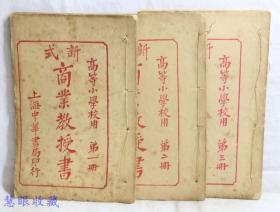 新式
商業教授書
高等小學校用 第一冊
上海中華書局印行
新
高等小學校用 第二冊
教授書
新
高等小學校用 第三冊
慧眼收藏